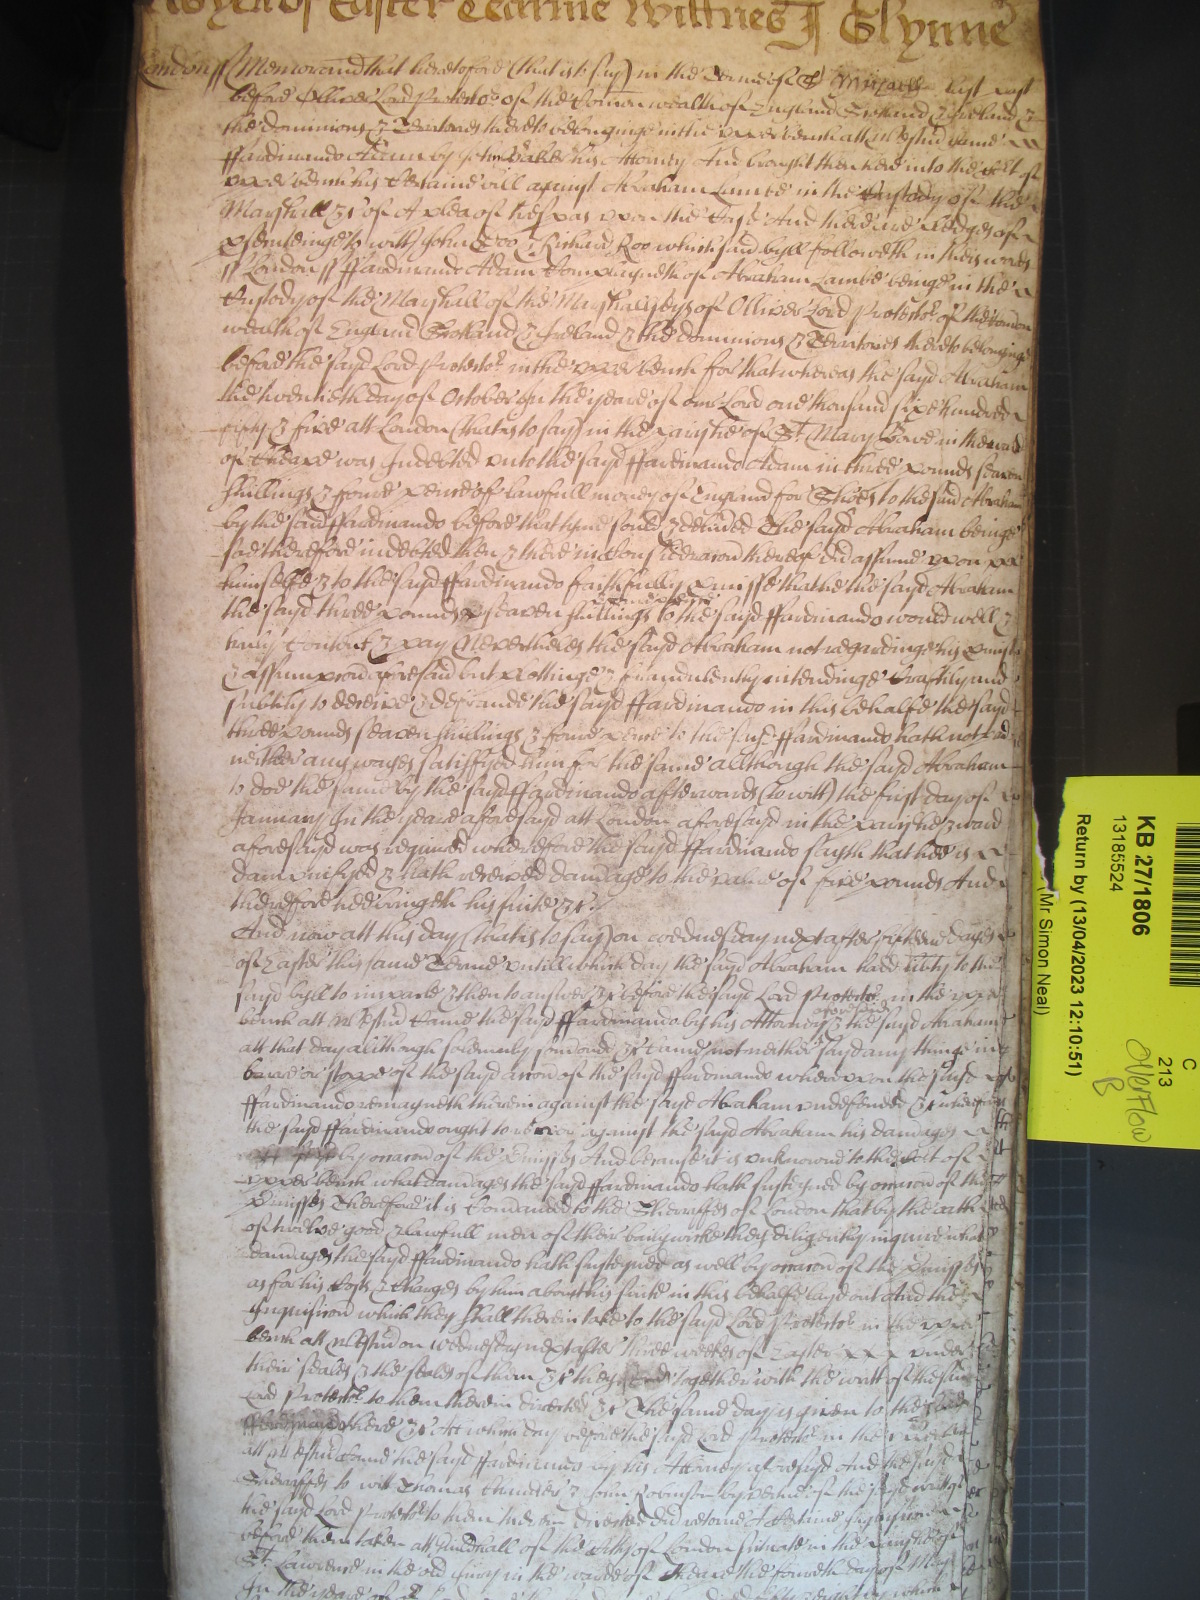 yeld of Easter Tearme Wittnes J Glynne
London ss Memorand that heretofore (that is to say) in the Terme of St Michaell last past
before Oliver Lord Protector of the Comon wealth of England Scotland & Ireland &
the dominions & Territories thereto belonginge in the upper bench att Westmr came
ffardinando Adam by John Baker his Attorney And brought then here into the Cort of
upper bench his Certaine bill against Abraham Lambe in the Custody of the
Marshall &c of A plea of trespas upon the Case And there are pledges of
prosecutinge to witt John Doo & Richard Roo which said byll followeth in theis words
ss London ss ffardinando Adam Complayneth of Abraham Lambe beinge in the
Custody of the Marshall of the Marshallseys of Olliver Lord Protector of the Comon
wealth of England Scotland & Ireland & the dominions & Territories thereto belonginge
before the sayd Lord Protector in the upper bench for that whereas the sayd Abraham
the twentieth day of October In the yeare of our Lord one thousand sixe hundred
fifty & five att London (that is to say) in the parishe of St Mary Bowe in the ward
of Cheape was Indebted unto the sayd ffardinando Adam in three pounds seaven
shillings & foure pence of lawfull money of England for Shoes to the said Abraham
by the said ffardinando before that time sould & delivered The sayd Abraham beinge
soe therefore indebted then & there in Consideracon thereof did assume upon
himselfe & to the sayd ffardinando faithfully promisse that he the sayd Abraham
the sayd three pounds seaven shillings to the sayd ffardinando would well &
truly Content & pay Neverthelesse the sayd Abraham not regardinge his promise
& assumpcon aforesaid but plottinge & fraudulently intendinge Craftily and
subtilly to deceive & defraude the sayd ffardinando in this behalfe the sayd
three pounds seaven shillings & foure pence to the said ffardinando hath not paid
neither any wayes satisfyed him for the same although the sayd Abraham
to doe the same by the sayd ffardinando afterwards (to witt) the first day of
January In the yeare aforesayd att London aforesayd in the parishe & ward
aforesayd was required wherefore the sayd ffardinando sayth that hee is
damnifyed & hath receved damage to the value of five pounds And
therefore hee bringeth his suite &c
And now att this day (that is to say) on wednesday next after fifteene dayes
of Easter this same Terme untill which day the sayd Abraham hadd liberty to the
sayd byll to imparle & then to answer &c before the sayd Lord Protector in the upper
bench att Westmr Came the sayd ffardinando by his Attorney aforesayd & the sayd Abraham
att that day although solemnly somoned &c came not neither sayd any thinge in
barre or stopp of the sayd accon of the sayd ffardinando whereupon the said
ffardinando remayneth therein against the sayd Abraham undefended &c wherefore
the sayd ffardinando ought to recover against the sayd Abraham his damages
by occasion of the premisses And because it is unknowne to the Cort of
upper bench what damages the sayd ffardinando hath susteyned by occasion of the
premisses Therefore it is Comanded to the Sheriffes of London that by the oath
of twelve good & lawfull men of their bailywicke they diligently inquire what
damages the sayd ffardinando hath susteyned as well by occasion of the premisses
as for his Costs & Charges by him about his suite in this behalfe layd out And the
Inquisicon which they shall therein take to the sayd Lord Protector in the upper
bench att Westmr on wednesday next after three weekes of Easter under
their seales & the seales of them &c they send together with the writt of the said
Lord Protector to them therein directed &c The same day is given to the said
ffardinando there &c Att which day before the sayd Lord Protector in the upper bench
att Westmr Came the sayd ffardinando by his Attorney aforesayd And the sayd
Sheriffes to witt Thomas Chandler & John by vertue of the sayd writt of
the sayd Lord Protector to them therein directed did retorne A Certaine Inquisicon
before them taken att Guildhall of the Citty of London scituate in the parishe of
St Lawrence in the old Jury in the warde of Cheape the fourth day of May
In the yeare of
KB 27/1806
13185524
Return by (13/04/2023 12:10:51)
(Mr Simon Neal)
C
213
Overflow
B